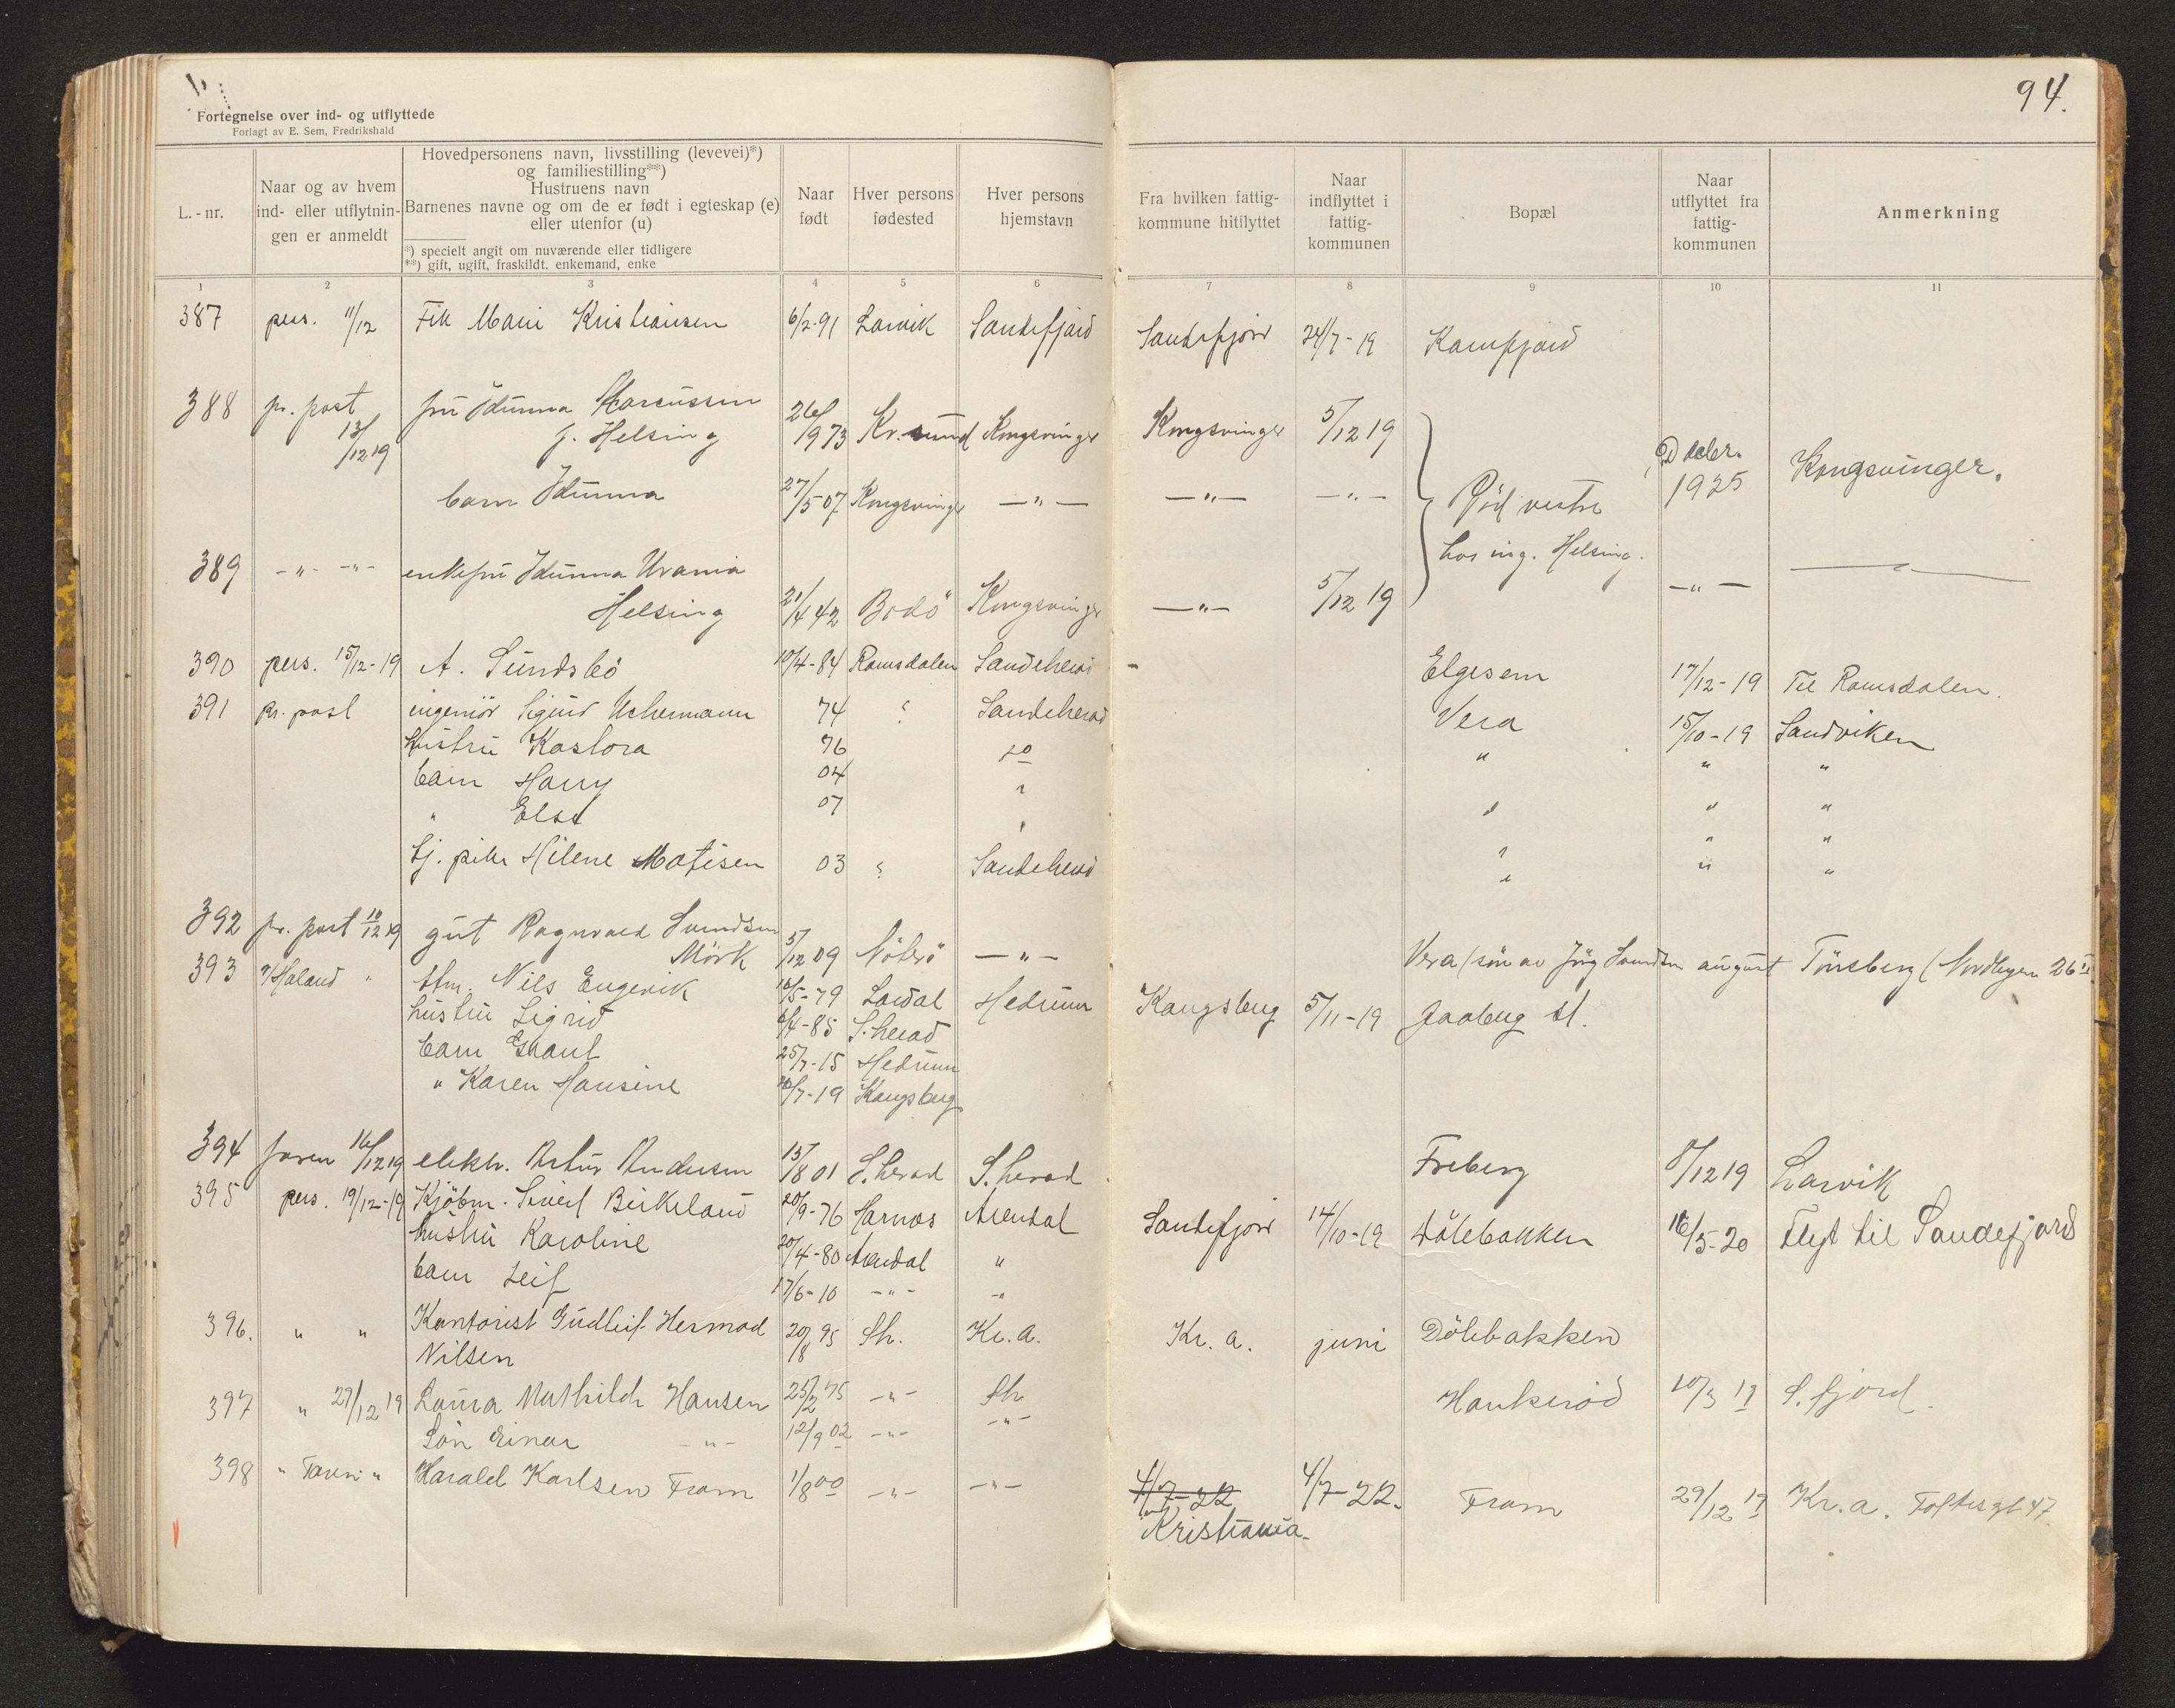 94.
Fortegnelse over ind- og utflyttede
Forlagt av E. Sem, Fredrikshald
L.-nr.
Naar og av hvem ind- eller utflytnin- gen er anmeldt
Hovedpersonens navn, livsstilling (levevei)*)
og familiestilling**)
Hustruens navn
Barnenes navne og om de er født i egteskap (e)
eller utenfor (u)
*) specielt angit om nuværende eller tidligere
**) gift, ugift, fraskildt, enkemand, enke
Naar født
Hver persons fødested
Hver persons hjemstavn
Fra hvilken fattig- kommune hitilyttet
Naar indflyttet i fattig- kommunen
Bopæl
Naar utflyttet fra fattig- kommunen
Anmerkning
1 2 3 4 5 6 7 8 9 10 11
387 pers. 11/12 Frk Marie Kristiansen 6/2-91 Larvik Sandefjord Sandefjord 24/7-19 Kamfjord
388 pr. post fru Idunna Marcussen
13/12 19 f. Helsing 26/9 73 Kr.sund Kongsvinger Kongsvinger 5/12 19
Decbr.
barn Idunna 27/5 07 Kongsvinger —"— —"— —"— Rød vestre 1925 Kongsvinger.
hos ing. Helsing.
389 -"- -"- enkefru Idunna Urania
Helsing 21/4 42 Bodö Kongsvinger —"— 5/12 19 —"—
390 pers. 15/12-19 A. Sundsbö 10/4-84 Romsdalen Sandeherad - Elgesem 17/12-19 Til Romsdalen.
391 pr. post ingeniör Sigurd Uchermann 74 ? Sandeherad Vera 15/10-19 Sandviken
hustru Kastora 76 do " " "
barn Harry 04 " " " "
" Elsa 07 " " " "
tj. pike Hilene Matisen 03 ? Sandeherad " " "
392 pr. post 10/12 19 gut Ragnvald Svendsen
Mörk 5/12 09 Nöterö —"— Vera (sön av Jörg Svendsen august Tönsberg (Nordbyen 26 II
393 Haland " Nils Engevik 16/5-79 Lardal Hedrum Kongsberg 5/11-19 Jaaberg st.
hustru Sigrid 6/4-85 S.herad
barn 25/7-15 Hedrum
" Karen Hansine 20/7-19 Kongsberg
394 faren 16/12 19 elektr. Artur Andersen 15/8 01 S.herad S.herad Freberg 8/12 19 Larvik
395 pers. 19/12-19 Kjöbm. Sivert Birkeland 20/9-76 Harnas Arendal Sandefjord 14/10-19 Dölebakken 16/5-20 Flyt til Sandefjord
hustru Karoline 20/4-80 Arendal "
barn Leif 17/6-10 -"- -"
396. " " Kontorist Gudleif Hermod
Nilsen 20/8 95 Sh. Kr.a. Kr.a. juni Dölebakken
397 " 29/12 19 Laura Mathilde Hansen 25/2 75 -"- Sh Haukerød 10/3 19 S.fjord.
Sön Einar -"- 12/9 02 -"- -"-
398 " Faren " Harald Karlsen Fram 1/8 00 -"- -"- 4/7-22 4/7-22. Fram 29/12 19 Kr.a. Toftesgt 47
Kristiania